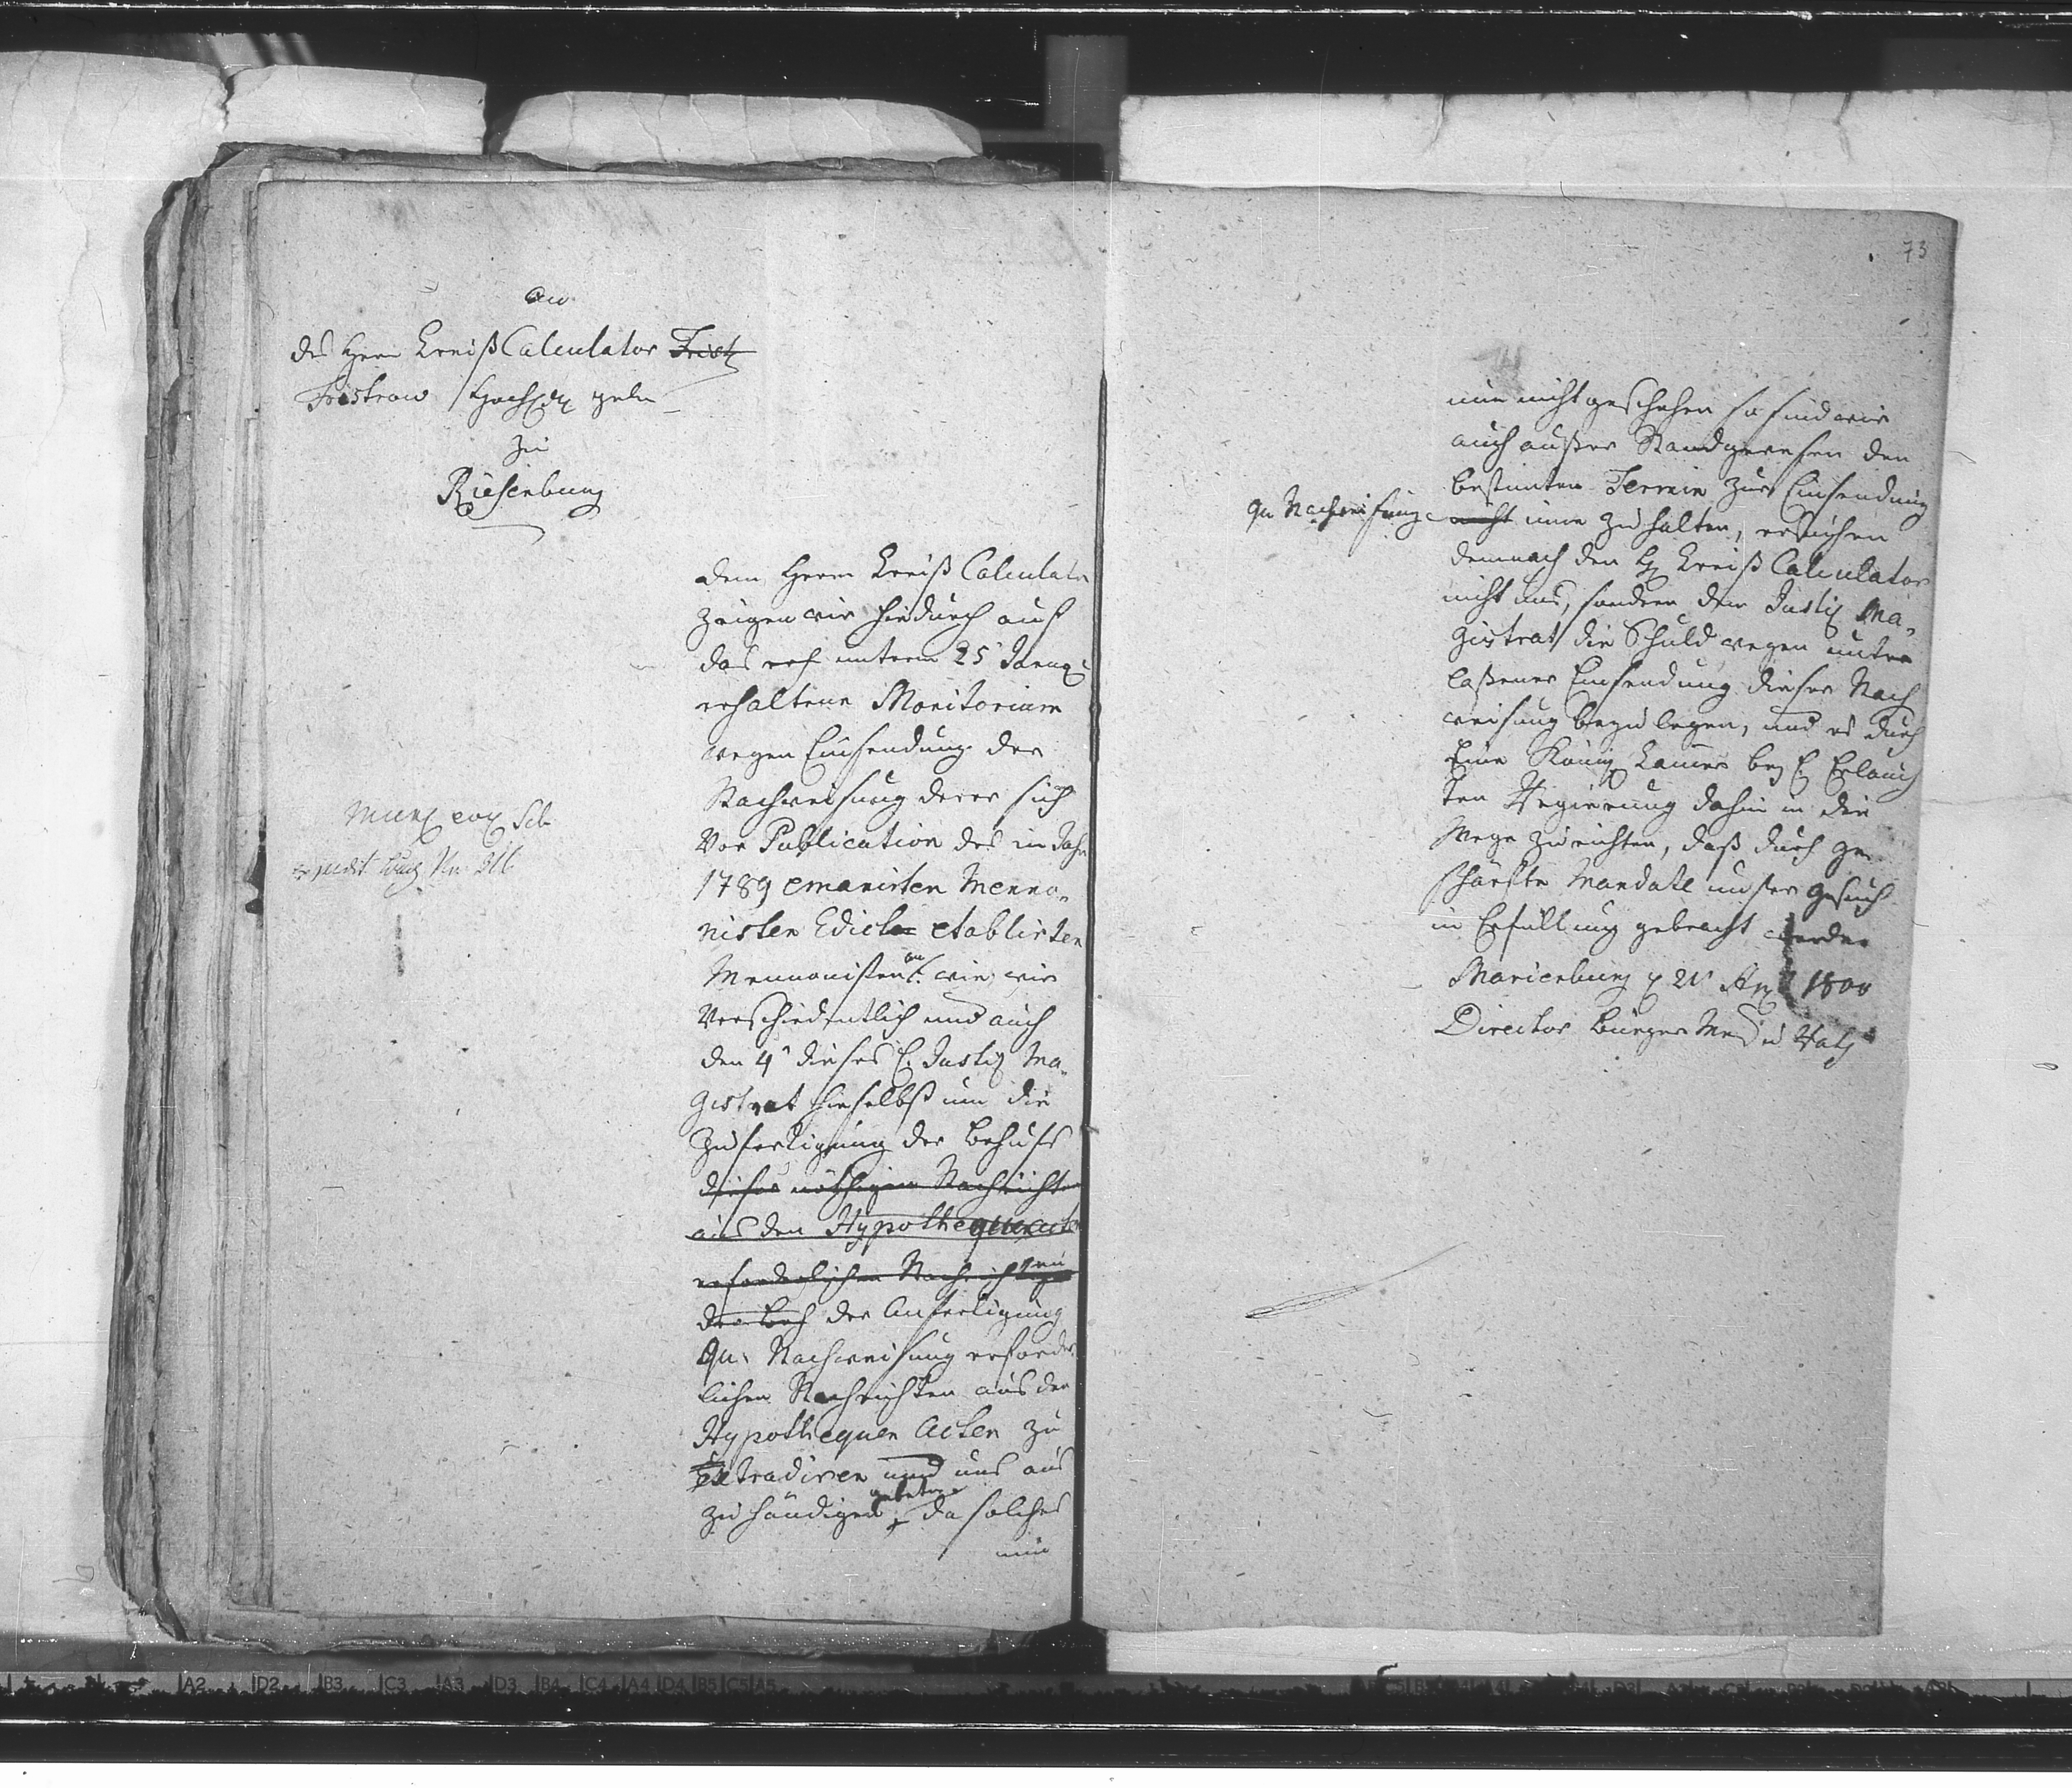 73
An
des Herrn Kreiß Calculator Frist
Fristrow Hoch
zu
Riesenburg
dem Herrn Kreiß Calculator
zeigen wir hiedurch auf
das unterm 25
erhaltene Monitorium
wegen Einsendung der
Nachweisung derer sich
vor Publication des im Jahr
1789 emanirten Menno-
nisten Edicts etablirten
Mennonisten an, wie wir
verschiedentlich und auch
den 4t dieses E. Justiz Ma-
gistrat hieselbst um die
Zufertigung der behufs
dieser nöthigen Nachrichten
aus den Hypothequenacten
erforderlichen Nachrichten
der Anfertigung
qu. Nachweisung erforder-
lichen Nachrichten aus den
Hypothequen Acten zu
extradiren und uns aus
zu händigen gebeten, da solches
nun
nun nicht geschehen so sind wir
auch außer Stand gewesen den
bestimten Termin zur Einsendung
qu Nachweisung nicht inne zu halten, ersuchen
demnach den H Kreiß Calculator
nicht uns, sondern dem Justiz Ma-
gistrat die Schuld wegen unter
laßener Einsendung dieser Nach
weisung beyzulegen, und es durch
Eine König Camer bey E Erlauch
ten Regierung dahin in die
Wege zu richten, daß durch ge-
schärfte Mandate unser Gesuch
in Erfüllung gebracht werde
Marienburg 1800
Director Bürger M u Rath